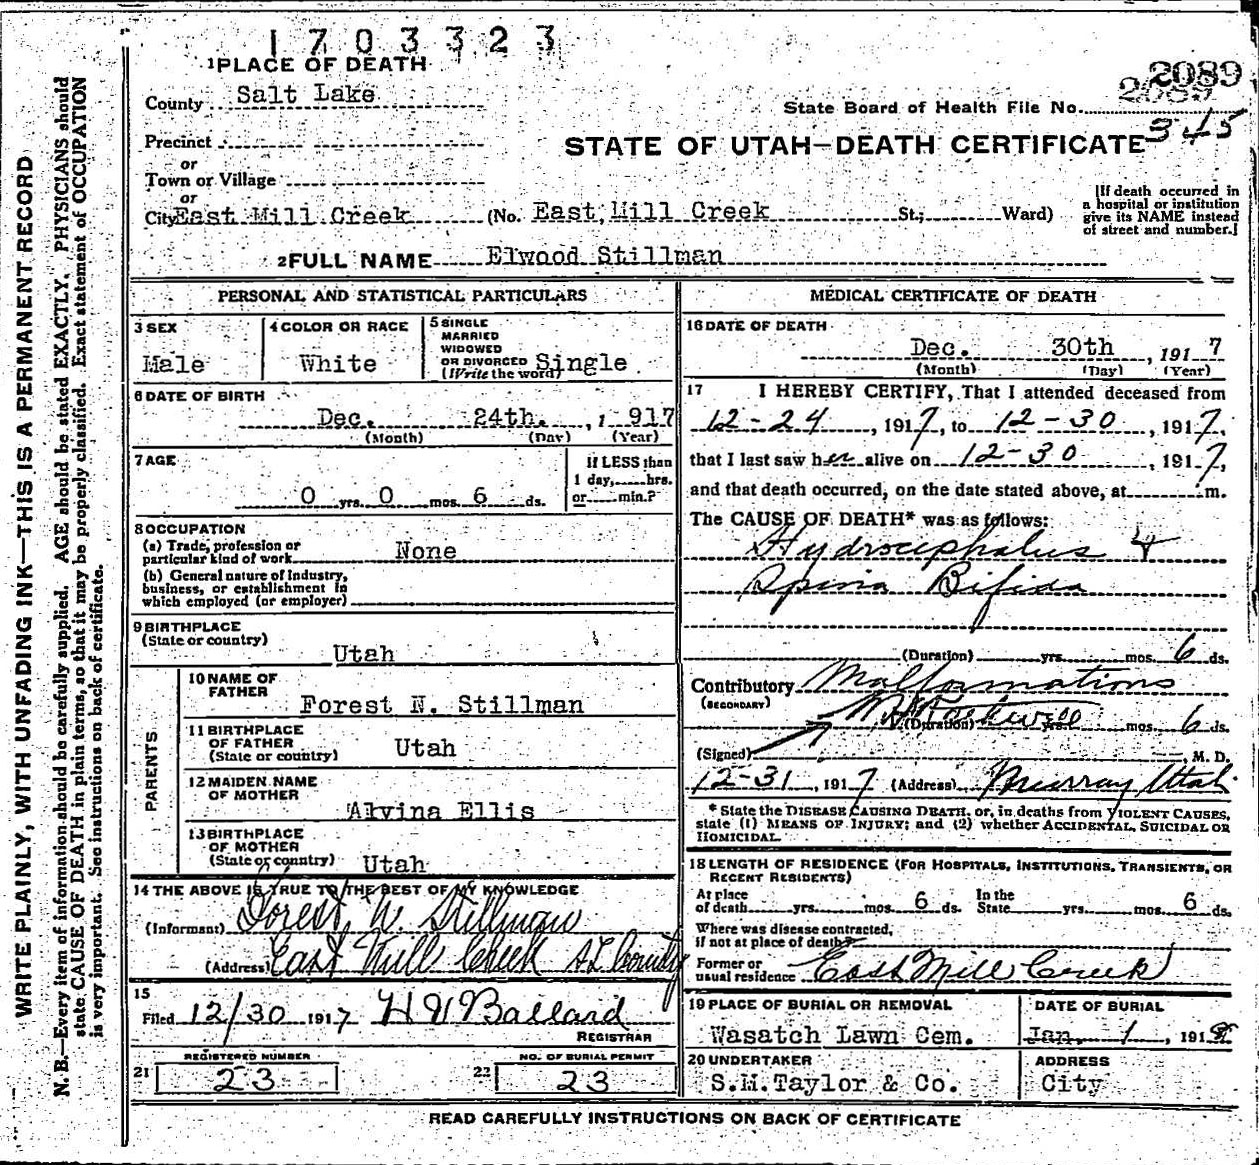 1703323
1 PLACE OF DEATH
County Salt Lake
2089
State Board of Health File No. 2089
345
Precinct
STATE OF UTAH—DEATH CERTIFICATE
or
Town or Village
or
City East Mill Creek (No. East Mill Creek St.; Ward)
[If death occurred in
a hospital or institution
give its NAME instead
of street and number.]
2 FULL NAME Elwood Stillman
PERSONAL AND STATISTICAL PARTICULARS
3 SEX
Male
4 COLOR OR RACE
White
5 SINGLE
MARRIED
WIDOWED
OR DIVORCED
(Write the word) Single
6 DATE OF BIRTH
Dec. 24th. , 1 917
(Month) (Day) (Year)
7 AGE
0 yrs. 0 mos. 6 ds.
If LESS than
1 day, hrs.
or min.?
8 OCCUPATION
(a) Trade, profession or
particular kind of work None
(b) General nature of Industry,
business, or establishment in
which employed (or employer)
9 BIRTHPLACE
(State or country)
Utah
PARENTS
10 NAME OF
FATHER
Forest N. Stillman
11 BIRTHPLACE
OF FATHER
(State or country) Utah
12 MAIDEN NAME
OF MOTHER
Alvina Ellis
13 BIRTHPLACE
OF MOTHER
(State or country) Utah
14 THE ABOVE IS TRUE TO THE BEST OF MY KNOWLEDGE
(Informant) Forest N. Stillman
(Address) East Mill Creek SL County
15
Filed 12/30 1917 H V Ballard
REGISTRAR
REGISTERED NUMBER
21 23
NO. OF BURIAL PERMIT
22 23
MEDICAL CERTIFICATE OF DEATH
16 DATE OF DEATH
Dec. 30th , 191 7
(Month) (Day) (Year)
17 I HEREBY CERTIFY, That I attended deceased from
12-24 , 1917, to 12-30 , 1917,
that I last saw her alive on 12-30 , 1917,
and that death occurred, on the date stated above, at m.
The CAUSE OF DEATH* was as follows:
Hydrocephalus &
Spina Bifida
(Duration) yrs. mos. 6 ds.
Contributory Malformations
(SECONDARY)
(Duration) yrs. mos. 6 ds.
(Signed) M. D.
12-31, 1917 (Address) Murray Utah
* State the DISEASE CAUSING DEATH, or, in deaths from VIOLENT CAUSES,
state (1) MEANS OF INJURY; and (2) whether ACCIDENTAL, SUICIDAL OR
HOMICIDAL.
18 LENGTH OF RESIDENCE (FOR HOSPITALS, INSTITUTIONS, TRANSIENTS, OR
RECENT RESIDENTS)
At place
of death yrs. mos. 6 ds. In the
State yrs. mos. 6 ds.
Where was disease contracted,
if not at place of death?
Former or
usual residence East Mill Creek
19 PLACE OF BURIAL OR REMOVAL
Wasatch Lawn Cem.
DATE OF BURIAL
Jan. 1 , 1918
20 UNDERTAKER
S.M.Taylor & Co.
ADDRESS
City
READ CAREFULLY INSTRUCTIONS ON BACK OF CERTIFICATE
WRITE PLAINLY, WITH UNFADING INK—THIS IS A PERMANENT RECORD
N. B.—Every item of information should be carefully supplied. AGE should be stated EXACTLY. PHYSICIANS should
state CAUSE OF DEATH in plain terms, so that it may be properly classified. Exact statement of OCCUPATION
is very important. See instructions on back of certificate.